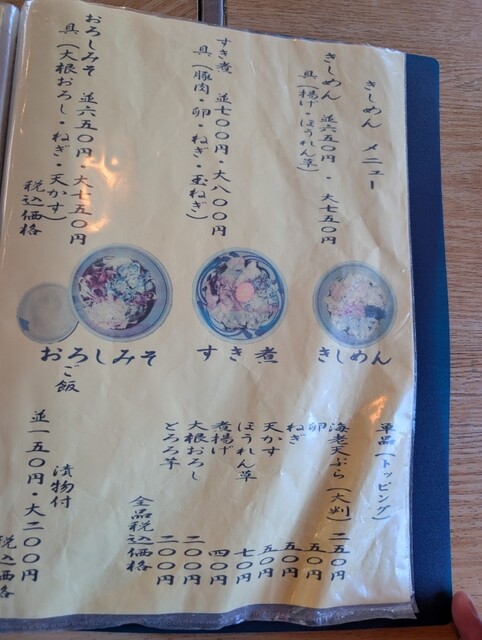 きしめん メニュー
きしめん 並六五〇円・大七五〇円
具(揚げ・ほうれん草)
すき煮 並七〇〇円・大八〇〇円
具(豚肉・卵・ねぎ・玉ねぎ)
おろしみそ 並六五〇円・大七五〇円
具(大根おろし・ねぎ・天かす)
税込価格
きしめん
すき煮
おろしみそ
単品(トッピング)
海老天ぷら(大判) 二五〇円
卵 五〇円
ねぎ 五〇円
天かす 五〇円
ほうれん草 七〇円
煮揚げ 四〇円
大根おろし 二〇〇円
とろろ芋 二〇〇円
全品税込価格
ご飯
漬物付
並一五〇円・大二〇〇円
税込価格